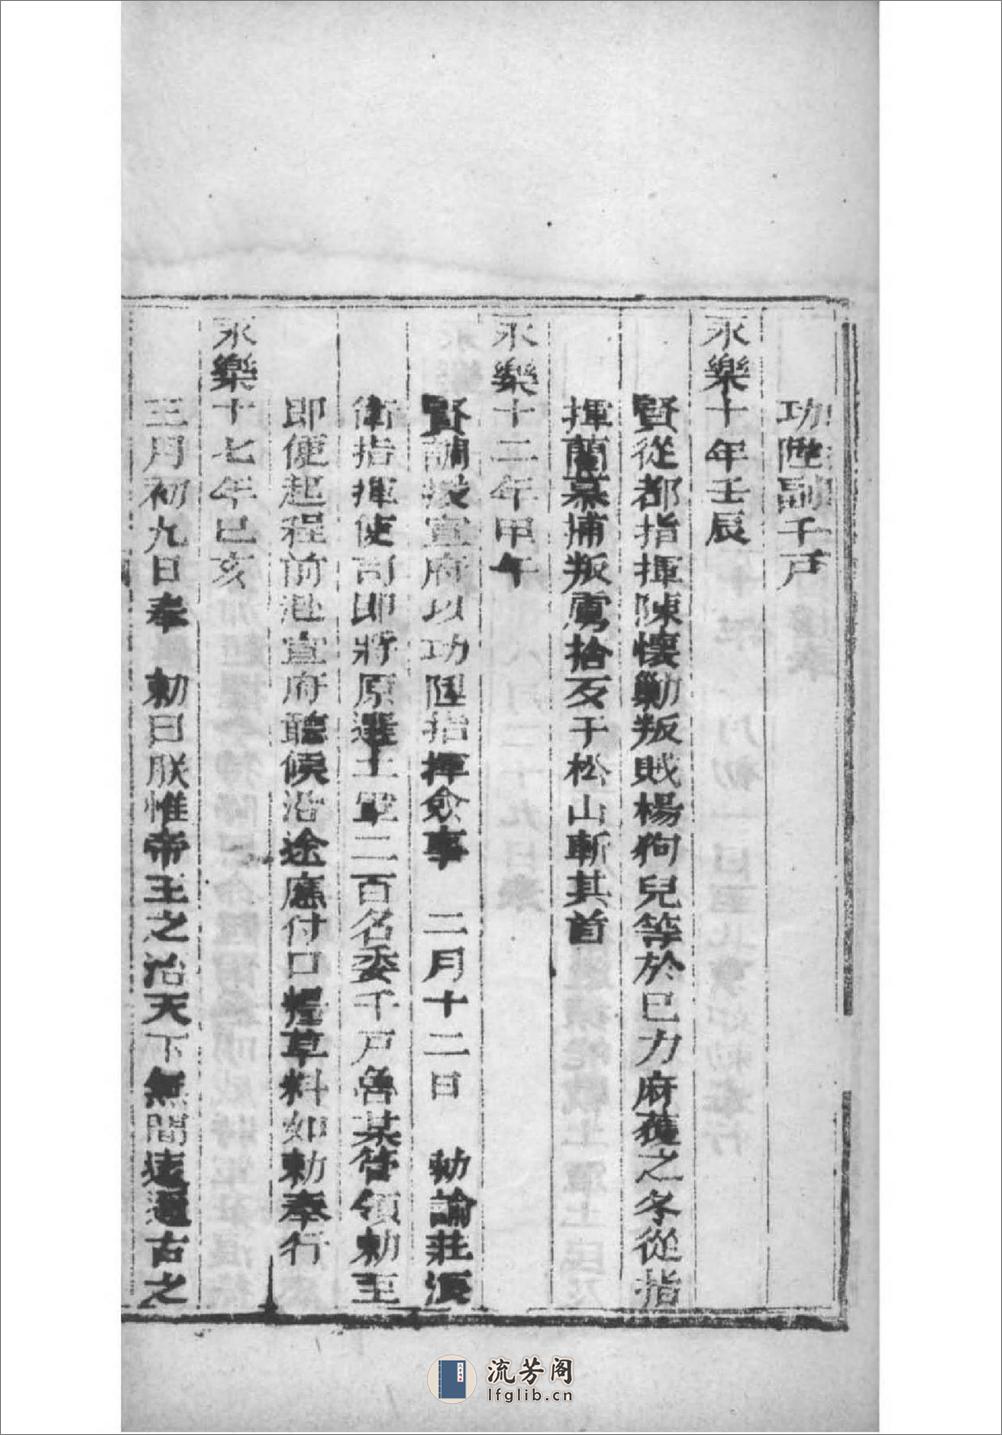 功陞副千戶
永樂十年壬辰
賢從都指揮陳懷勦叛賊楊狗兒等於巳力麻獲之冬從指
揮蘭募捕叛虜捨歹于松山斬其首
永樂十二年甲午
賢調援宣府以功陞指揮僉事 二月十二日 勅諭莊浪
衛指揮使司即將原選土軍二百名委千戶魯某管領勅至
即便起程前赴宣府聽候沿途應付口糧草料如勅奉行
永樂十七年己亥
三月初九日奉 勅曰朕惟帝王之治天下無間遠邇古之
流芳阁
lfglib.cn